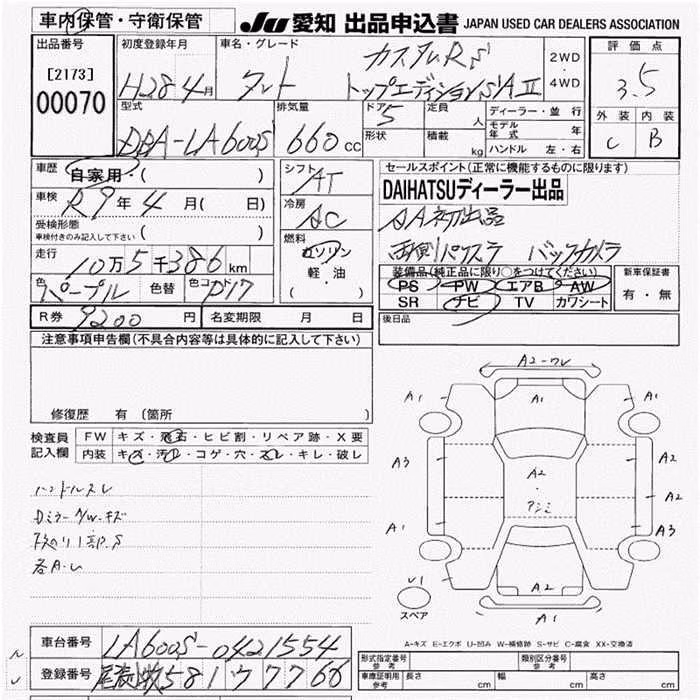 車内保管・守衛保管
JU 愛知 出品申込書 JAPAN USED CAR DEALERS ASSOCIATION
出品番号 初度登録年月 車名・グレード 評価点
[2173] カスタムRS 2WD
00070 H28 4月 タント トップエディションSAⅡ ・ 4WD 3.5
型式 排気量 ドア 定員 ディーラー・並行 外装 内装
DBA-LA600S 660cc 5 人 モデル年式 年式 C B
形状 積載 kg ハンドル 左・右
車歴 自家用・( ) シフト AT セールスポイント(正常に機能するものに限ります)
車検 R9年4月( 日) 冷房 AC DAIHATSUディーラー出品
受検形態 AA初出品
車検付きのみ記入して下さい ( ) 燃料 両側パワスラ バックカメラ
走行 10万5千386km ガソリン 装備品(純正品に限り○をつけてください) 新車保証書
色 パープル 色替 色コードP17 軽・油 PS PW エアB AW 有・無
・( ) SR ナビ TV カワシート
R券 9200円 名変期限 月 日 後日品
注意事項申告欄(不具合内容等は具体的に記入して下さい)
修復歴 有 〔箇所 〕
検査員 FW キズ・飛石・ヒビ割・リペア跡・X要
記入欄 内装 キズ・汚レ・コゲ・穴・スレ・キレ・破レ
ハンドルスレ
Dミラー A/W.キズ
各A.U
A2-ワレ
A1 A1 A1
A3 A2 A1
A2
A1 A3
A2
U1 A1
スペア
A-キズ E-エクボ U-凹み W-補修跡 S-サビ C-腐食 XX-交換済
車台番号 LA600S-0421554
登録番号 尾張小牧 581 ワ 7766
形式指定番号 参考 類別区分番号 参考
車庫証明用 参考 長さ cm 幅 cm 高さ cm